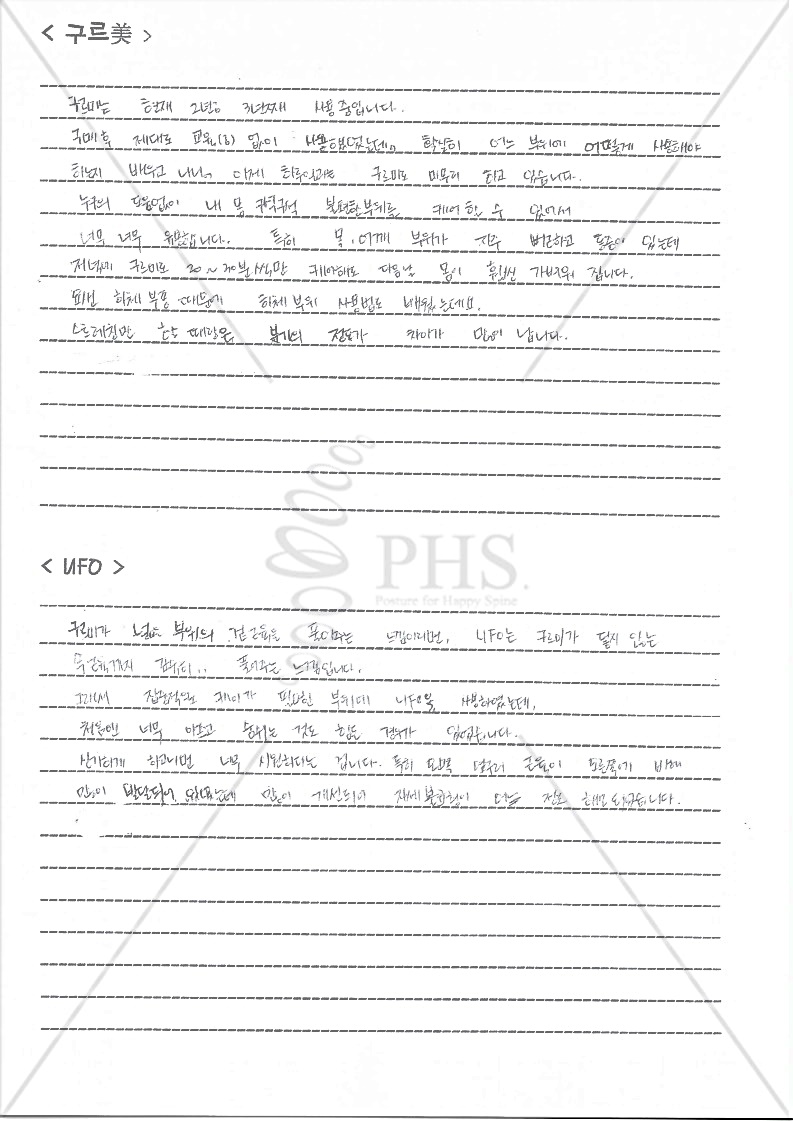 < 구르美 >
구르미는 현재 2년넘 3년째 사용중입니다.
구매 후 제대로 교육(?) 없이 사용했었는데, 확실히 어느 부위에 어떻게 사용해야
하는지 배우고 나니, 이제 하루일과는 구르미로 마무리 하고 있습니다.
누구의 도움없이 내 몸 구석구석 불편한 부위를 케어 할 수 있어서
너무 너무 유용합니다. 특히 목, 어깨 부위가 자주 뻐근하고 통증이 있는데
저녁에 구르미로 20~30분씩만 케어해도 다음날 몸이 훨씬 가벼워 집니다.
하체 부종 때문에 하체 부위 사용법도 배웠는데요,
스트레칭만 했을 때랑은 붓기의 정도가 차이가 많이 납니다.
PHS.
Posture for Happy Spine
< UFO >
구르미가 넓은 부위의 겉근육을 풀어주는 느낌이라면, UFO는 구르미가 닿지 않는
속근육까지 풀어주는 느낌입니다.
그래서 집중적으로 케어가 필요한 부위에 UFO를 사용하였는데,
처음엔 너무 아프고 숨쉬는 것도 힘든 경우가 있었습니다.
신기하게 하고나면 너무 시원하다는 겁니다. 특히 왼쪽 허리 근육이 오른쪽에 비해
많이 발달되어 있었는데 많이 개선되어 자세불균형이 다소 해소 되었습니다.